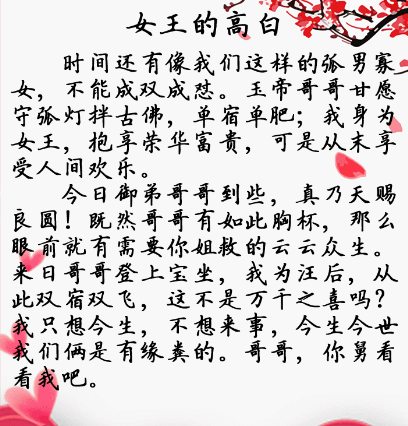 女王的高白
时间还有像我们这样的弧男寡
女，不能成双成怼。玉帝哥哥甘愿
守弧灯拌古佛，单宿单肥；我身为
女王，抱享荣华富贵，可是从末享
受人间欢乐。
今日御弟哥哥到些，真乃天赐
良圆！既然哥哥有如此胸杯，那么
眼前就有需要你姐救的云云众生。
来日哥哥登上宝坐，我为汪后，从
此双宿双飞，这不是万千之喜吗？
我只想今生，不想来事，今生今世
我们俩是有缘粪的。哥哥，你舅看
看我吧。